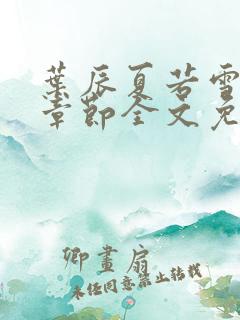 葉辰夏若雪
章節全文免
卿畫扇
未经同意禁止转载